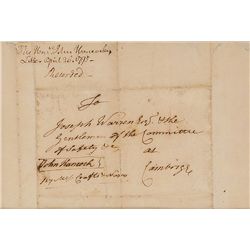 The Honble John Hancock
Letter April 24. 1775
Recorded
To
Joseph Warren Esqr. & the
Gentlemen of the Committee
of Safety &c
at
Cambrige
John Hancock